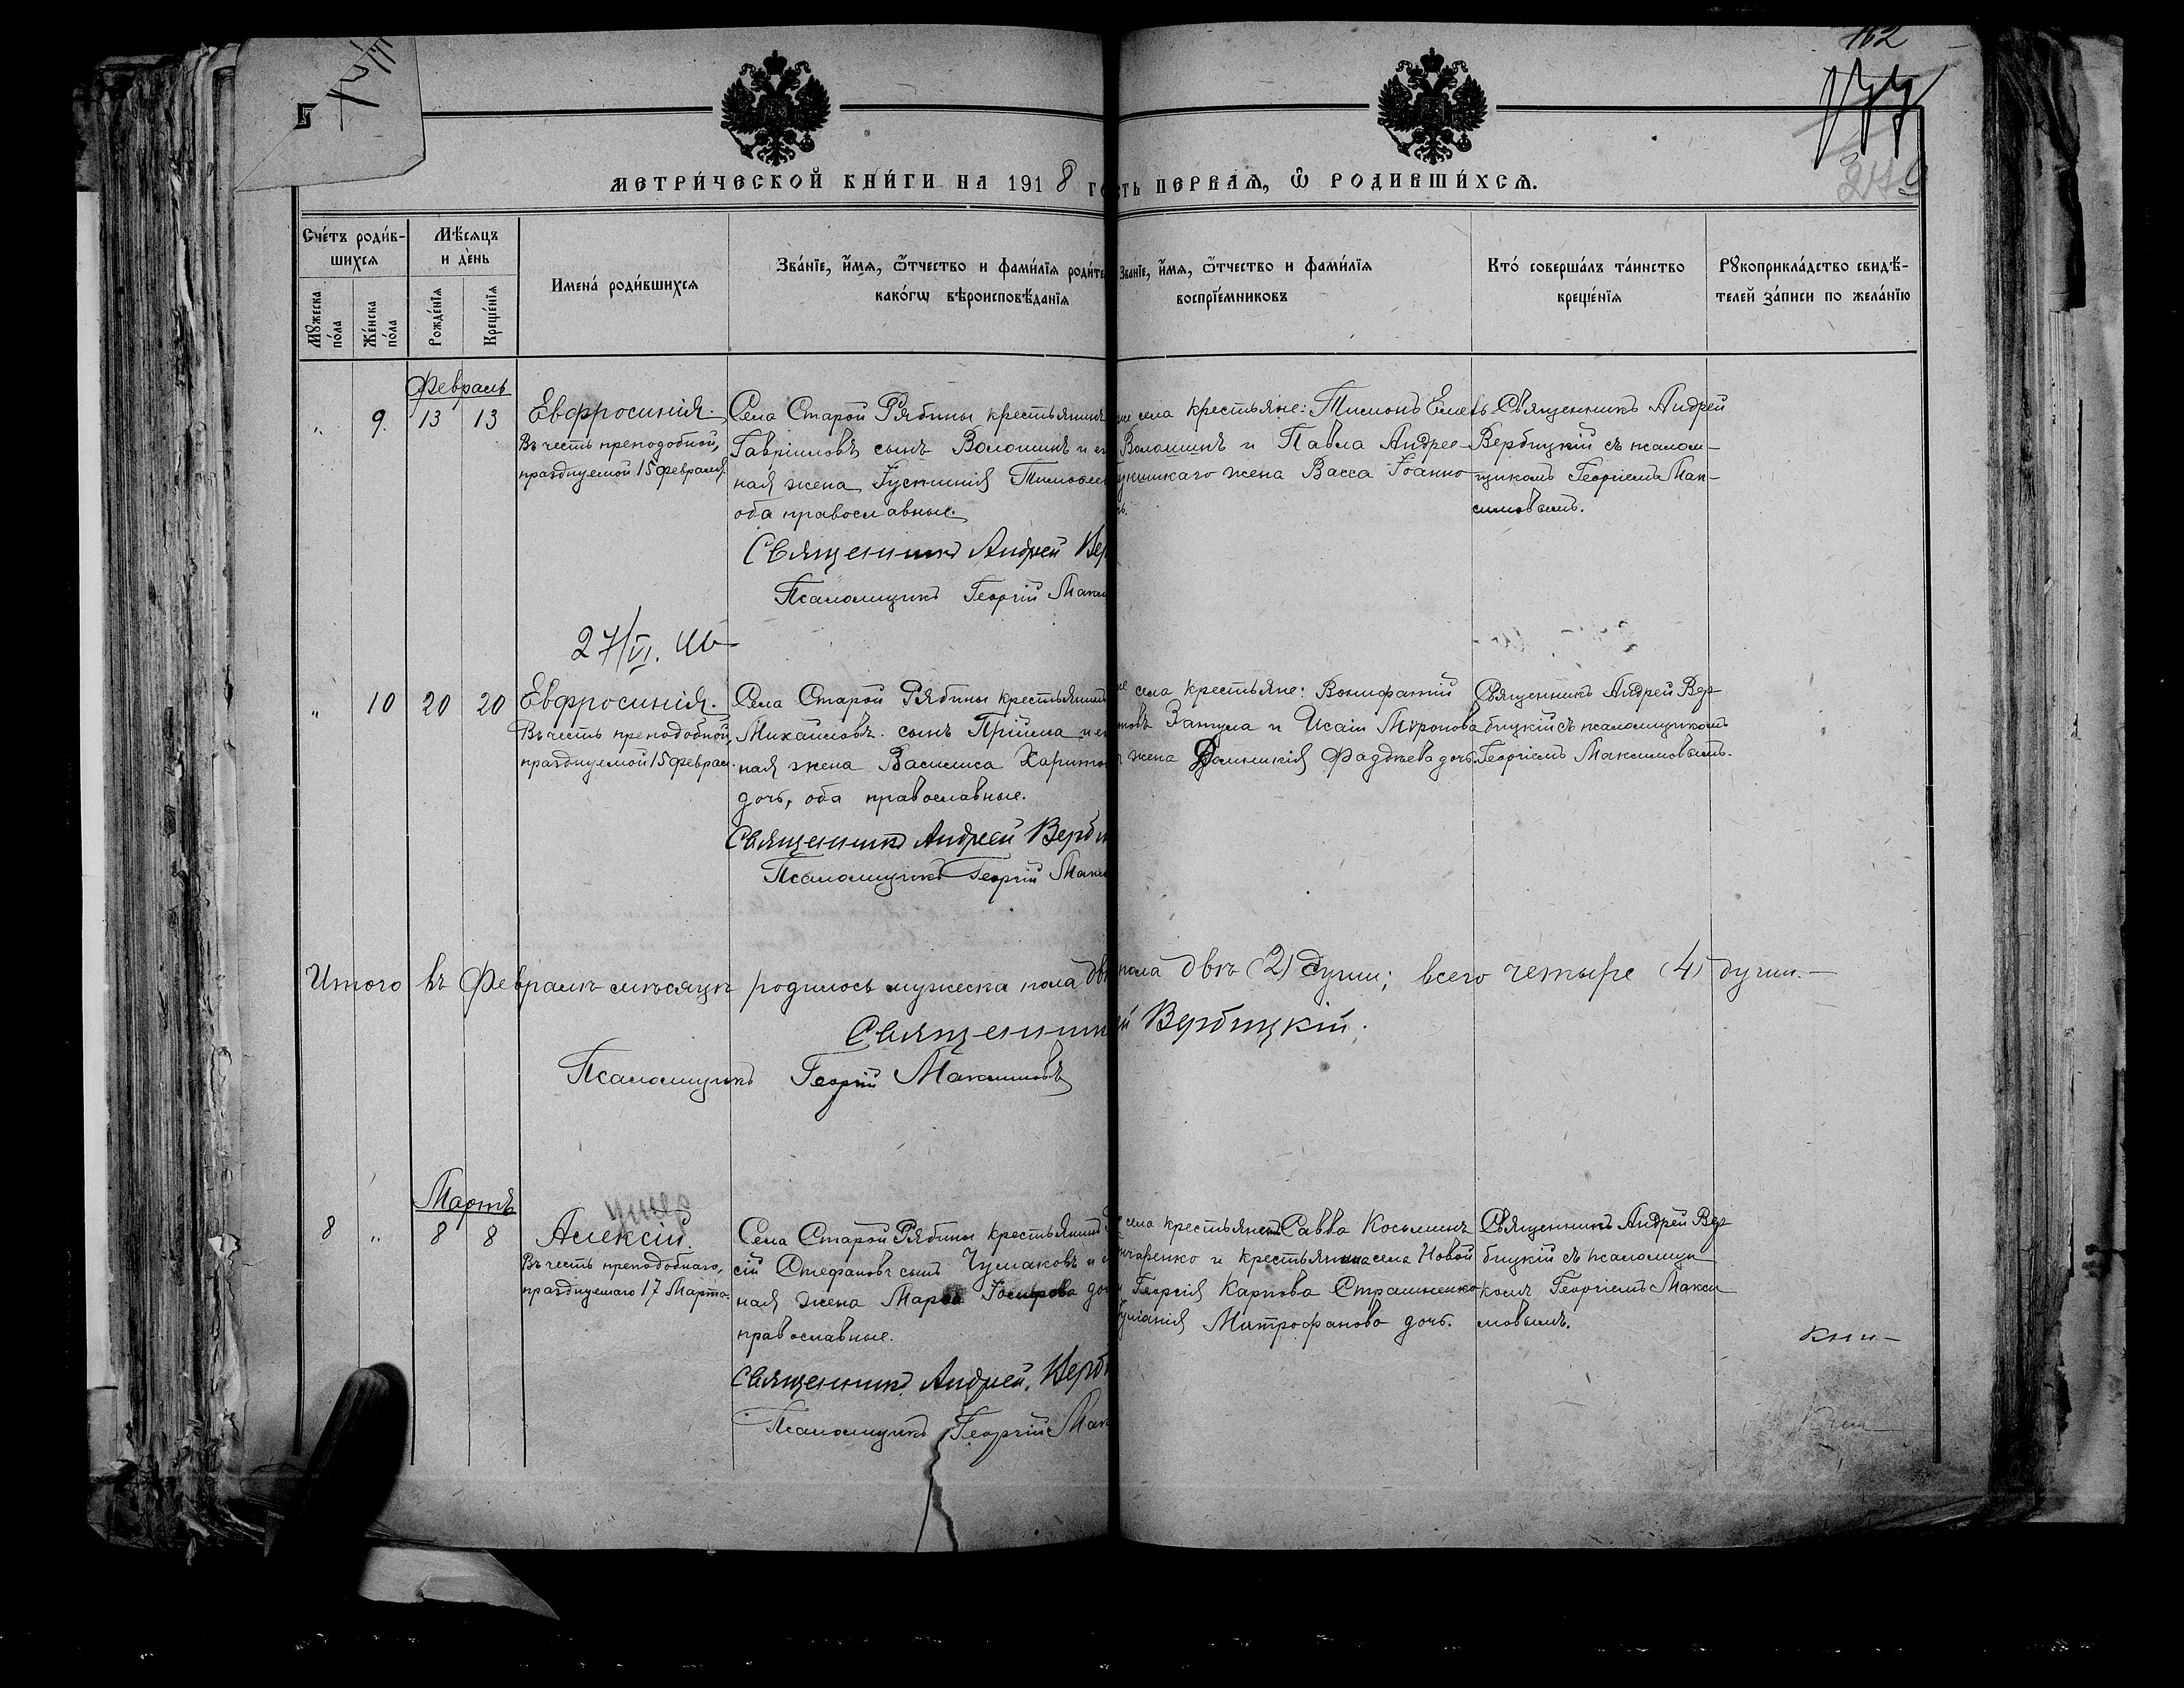 162
МЕТРИ́ЧЕСКОЙ КНИ́ГИ НА 1918
ПЕРВАЯ, Ѿ РОДИВШИ́ХСЯ.
Сче́тъ роди́в-
шихся
Мѣ́сяцъ
и де́нь
Имена́ роди́вшихся
Зва́нїе, и́мя, ѻ҆́тчество и фами́лїя роди́те
како́гѡ вѣроисповѣ́данїя
Зва́нїе, и́мя, ѻ҆́тчество и фами́лїя
воспрїе́мниковъ
Кто́ соверша́лъ та́инство
креще́нїя
Рꙋкоприкла́дство свидѣ́-
телей за́писи по жела́нїю
Мꙋжеска
по́ла
Же́нска
по́ла
Рожде́нїя
Креще́нїя
Февраль
" 9. 13 13
Евфросинія.
Въ честь преподобной,
празднуемой 15 февраля.
Села Старой Рябины крестьянинъ
Гавріиловъ сынъ Волошинъ и
ная жена Іустинія
оба православные.
Священникъ Андрей Вер
Псаломщикъ Георгій Макси
села крестьяне:
Волошинъ и Павла Андрее-
жена Васса Іоанно
Священникъ Андрей
Вербицкій съ псалом-
щикомъ Георгіемъ Мак-
симовымъ.
27/VI.
" 10 20 20
Евфросинія.
Въ честь преподобной,
празднуемой 15 феврал.
Села Старой Рябины крестьянинъ
Михаиловъ сынъ Прійма и
ная жена Василиса Харито
дочь, оба православные.
Священникъ Андрей Верби
Псаломщикъ Георгій Макси
села крестьяне: Вонифатій
Затула и Исаіи Миронова
жена Домникія Фаддѣева дочь.
Священникъ Андрей Вер-
бицкій съ псаломщикомъ
Георгіемъ Максимовымъ.
Итого въ Февралѣ мѣсяцѣ родилось мужеска пола двѣ
пола двѣ (2) души; всего четыре (4) души.—
Священник
й Вербицкій.
Псаломщикъ Георгій Максимовъ
Мартъ
умер
8 " 8 8
Алексій.
Въ честь преподобнаго,
празднуемаго 17 Марта.
Села Старой Рябины крестьянинъ
сій Стефановъ сынъ Чумаковъ и
ная жена
православные.
Священникъ Андрей Верб
Псаломщикъ Георгій Мак
села крестьянинъ Савва Косьминъ
нчаренко и крестьянина села Новой
Георгія Карпова Страшненко
Митрофанова дочь.
Священникъ Андрей Вер-
бицкій съ псаломщи
комъ Георгіемъ Макси
мовымъ.